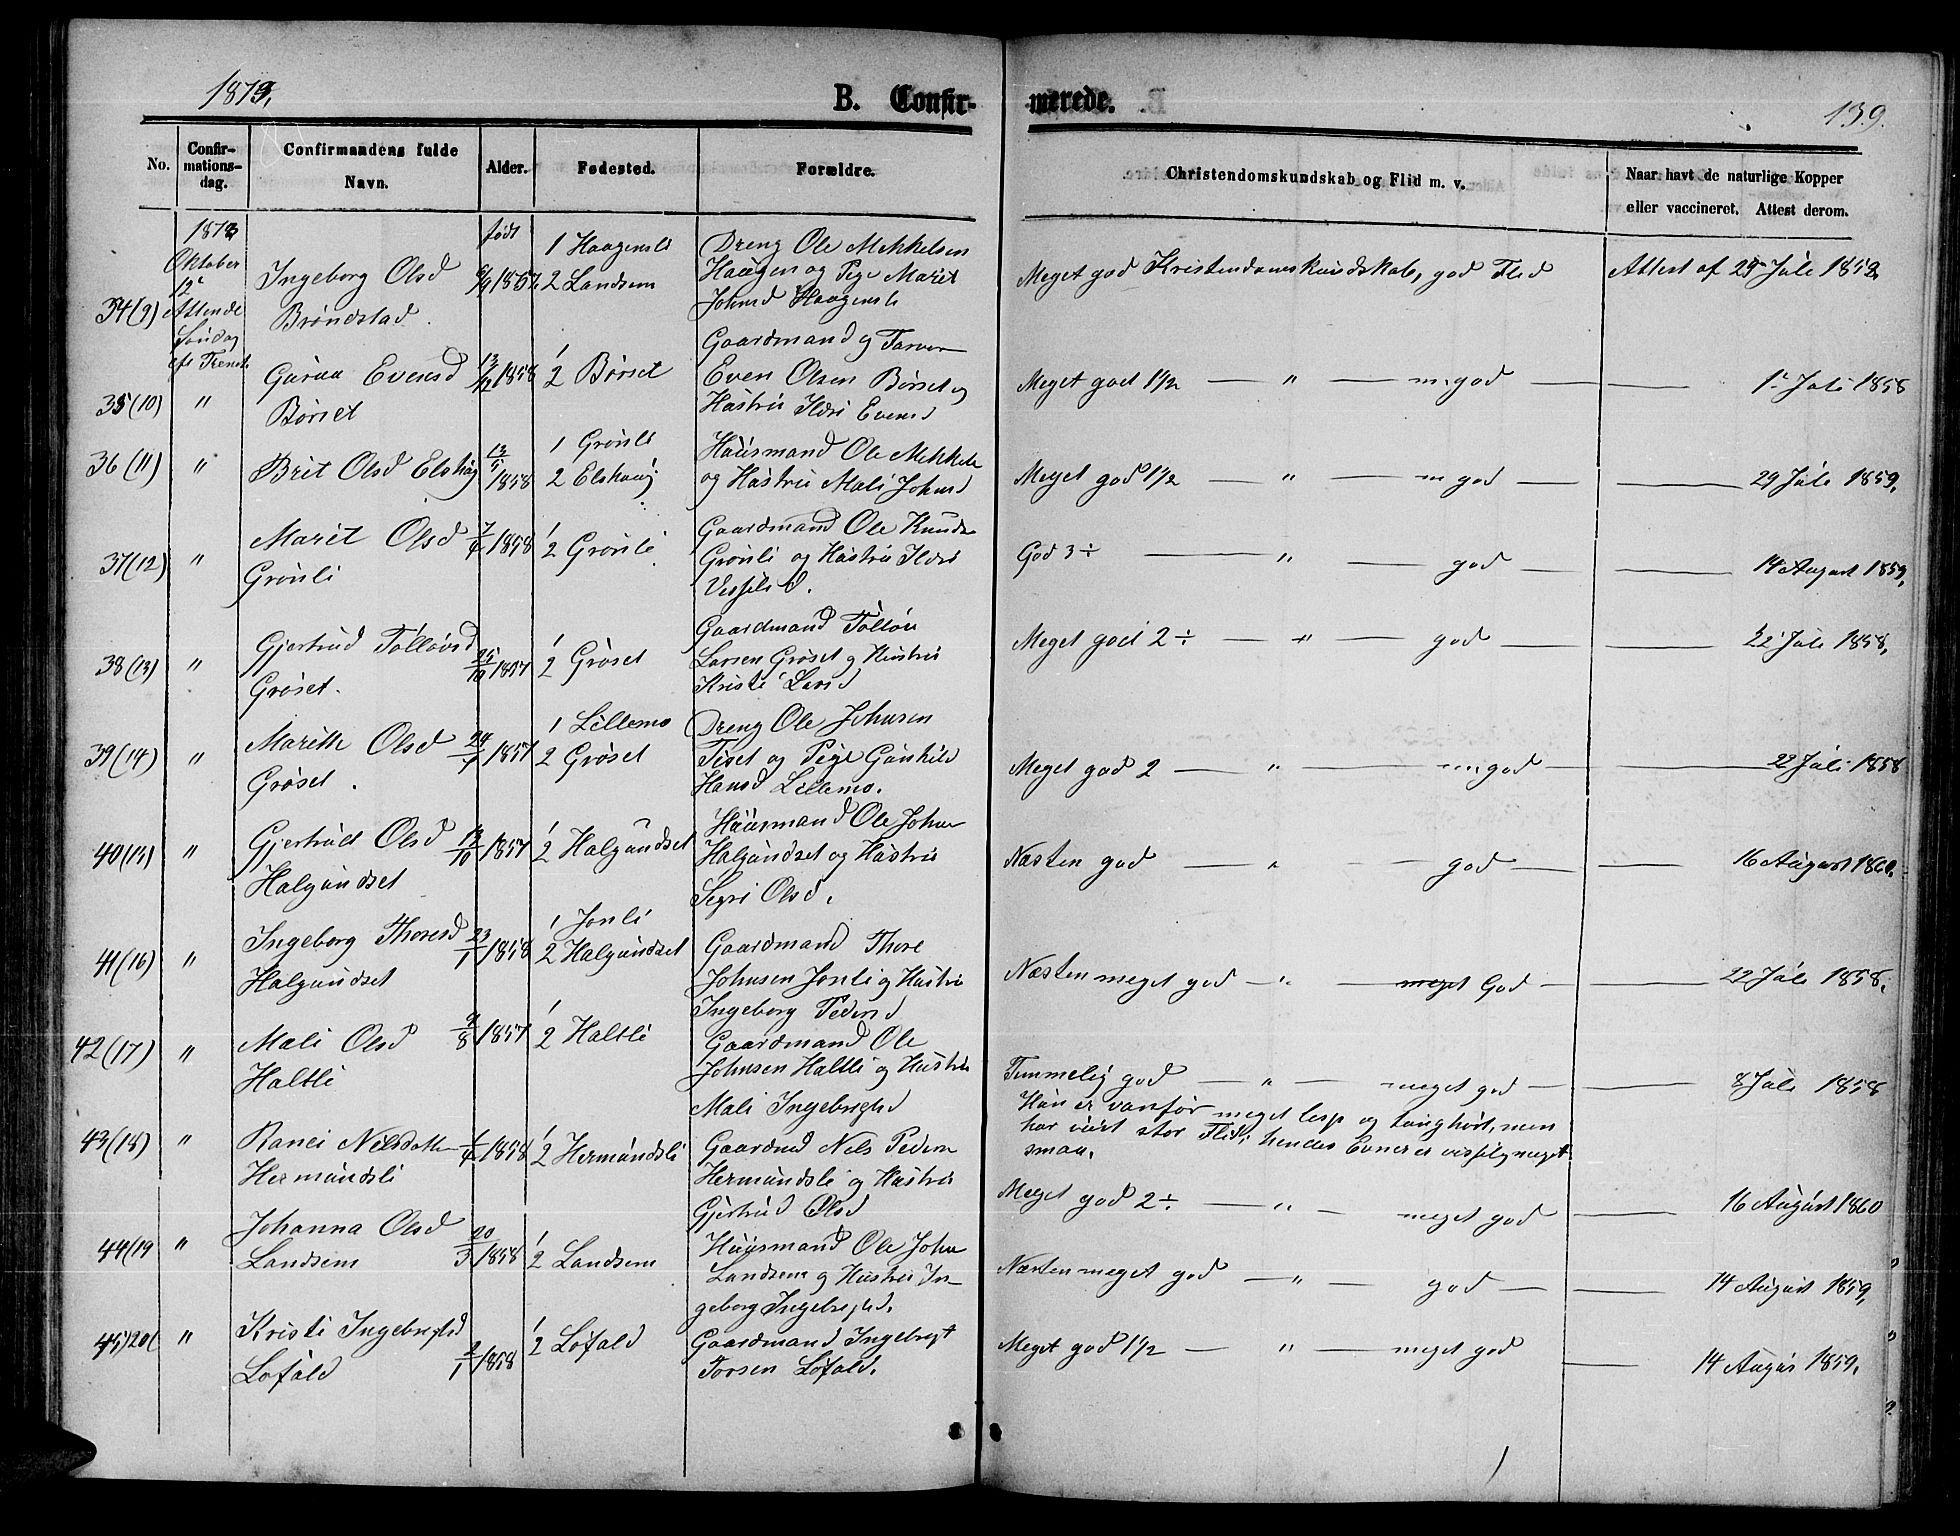 1873,
B. Confir-
merede.
139.
No.
Confir-
mations-
dag.
Confirmandens fulde
Navn.
Alder.
Fødested.
Forældre.
Christendomskundskab og Flid m. v.
Naar havt de naturlige Kopper
eller vaccineret. Attest derom.
1873
Oktober
12te
Attende
Søndag
eft Trenit.
34(9)
Ingeborg Olsd
Brøndstad
født
1857
1 Haagensli
2 Landsem
Dreng Ole Mekkelsen
Haugen og Pige Marit
Johnsd Haagensli
Meget god Kristendomskundskab, god Flid
Attest af 29 Juli 1858
35(10)
"
Guraa Evensd
Børset
13/12 1858
1
2 Børset
Gaardmand og Farver
Even Olsen Børset og
Hustru Ildri Evensd
Meget god 1½ — " — m. god —
1 Juli 1858
36(11)
"
Brit Olsd Elshaug
13/5 1858
1 Grønli
2 Elshaug
Huusmand Ole Mekkels
og Hustru Mali Johnsd
Meget god 1½ — " — m god —
29 Juli 1859,
37(12)
"
Marit Olsd
Grønli
7/4 1858
1
2 Grønli
Gaardmand Ole Knuds
Grønli og Hustru Ildri
God 3 ÷ — " — god —
14 August 1859,
38(13)
"
Gjertrud Tølløvsd
Grøset.
25/10 1857
1
2 Grøset
Gaardmand Tølløv
Larsen Grøset og Hustru
Kristi Larsd
Meget god 2 ÷ — " — god —
22 Juli 1858,
39(14)
"
Marith Olsd
Grøset.
1857
1 Lillemo
2 Grøset
Dreng Ole Johnsen
Tiset og Pige Gunhild
Hansd Lillemo.
Meget god 2 — " — m. god —
22 Juli 1858
40(15)
"
Gjertrud Olsd
Halgundset
1857
1
2 Halgundset
Huusmand Ole Johns
Halgundset og Hustru
Sigri Olsd.
Næsten god " — god —
16 August 1860.
41(16)
"
Ingeborg Thoresd
Halgundset
23/1 1858
1 Jonli
2 Halgundset
Gaardmand Thore
Johnsen Jonli og Hustru
Ingeborg Pedersd
Næsten meget god — " — meget God —
22 Juli 1858,
42(17)
"
Mali Olsd
Haltli
9/8 1857
1
2 Haltli
Gaardmand Ole
Johnsen Haltli og Hustru
Mali Ingebrigtsd
Temmelig god — " — meget god —
8 Juli 1858
Hun er vanfør meget lesp og tunghørt, men
har viist stor Flid; hendes Evner er visselig meget
smaa.
43(18)
"
Ranei Nelsdotter
Hermundsli
1858
1
2 Hermundsli
Gaardmd Nels Peders
Hermundsli og Hustru
Gjertrud Olsd
Meget god 2 ÷ — " — meget god —
16 August 1860
44(19
"
Johanna Olsd
Landsem
20/3 1858
1
2 Landsem
Huusmand Ole John
Landsem og Hustru In-
geborg Ingebrigtsd.
Næsten meget god — " — god —
14 August 1859,
45(20(
"
Kristi Ingebrigtsd
Løfald
2/1 1858
1
2 Løfald
Gaardmand Ingebrigt
Torsen Løfald.
Meget god 1½ — " — meget god
14 Augus 1859.